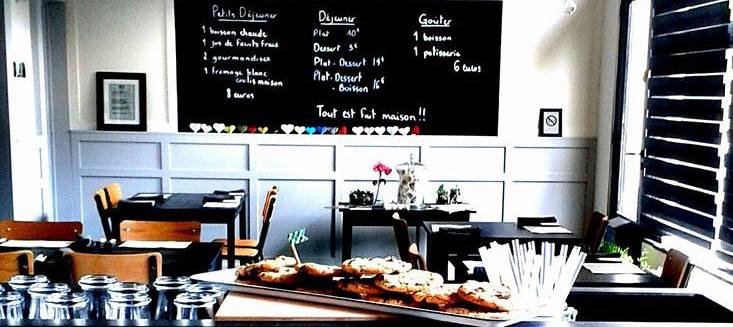 Petits Déjeuner
1 boisson chaude
1 jus de fruits frais
2 gourmandises
1 fromage blanc
coulis maison
8 euros
Déjeuner
Plat 10€
Dessert 5€
Plat-Dessert 14€
Plat-Dessert
- Boisson 16€
Goûter
1 boisson
1 patisserie
6 euros
Tout est fait maison!!